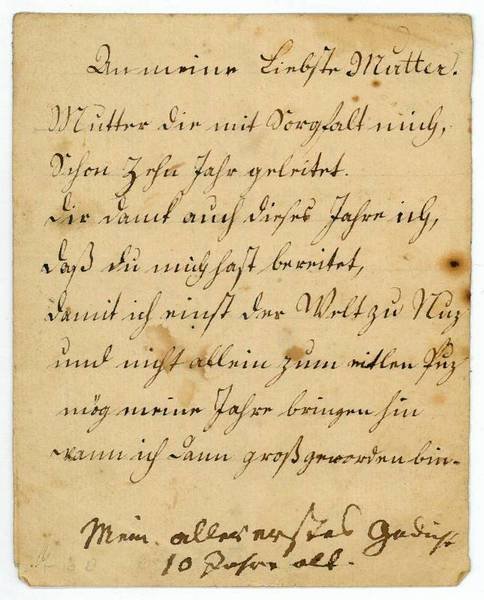 An meine Liebste Mutter.
Mutter die mit Sorgfalt mich,
Schon Zehn Jahr geleitet.
Dir danck auch dieses Jahre ich,
daß du mich hast bereitet,
damit ich einst der Welt zu Nuz
und nicht allein zum eitlen Puz
mög meine Jahre bringen hin
wann ich dann groß geworden bin.
Mein allererstes Gedicht
10 Jahre alt.